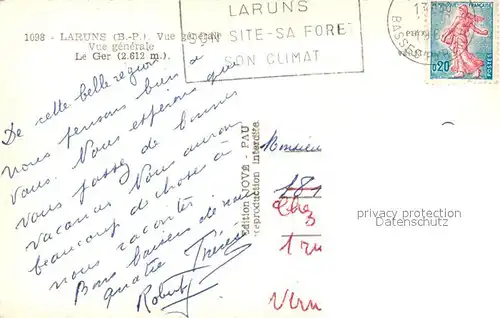 1698 - LARUNS (B.-P.) Vue générale
Vue générale
Le Ger (2.612 m.)
LARUNS
SON SITE-SA FORET
SON CLIMAT
BASSES
0,20
POSTES
De cette belle région
nous pensons bien à
vous. Nous espérons que
vous passez de bonnes
vacances. Nous aurons
beaucoup de choses à
nous raconter.
Bons baisers de nous
quatre Thérèse
Robert
Edition JOVÉ - PAU
reproduction interdite
Monsieur
181
Chez
1 ru
privacy protection
Datenschutz